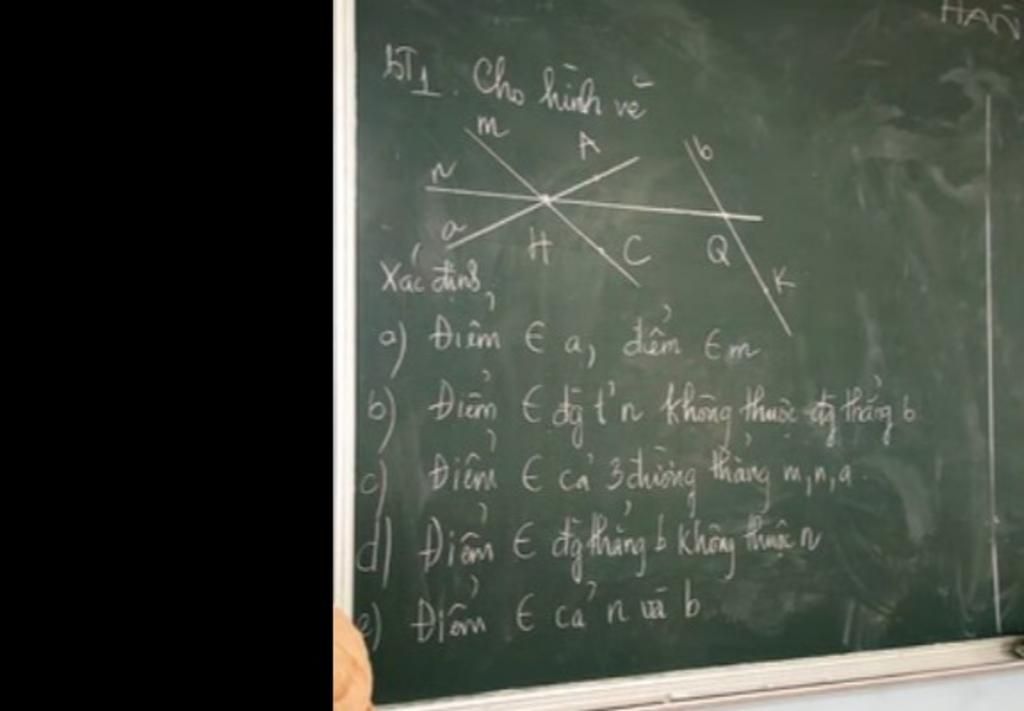 HAÑ
BT1. Cho hình vẽ
m
A
b
n
a
H
C
Q
K
Xác định
a) Điểm ∈ a, điểm ∈ m
b) Điểm ∈ đg t' n không thuộc đg thẳng b
c) Điểm ∈ cả 3 đường thẳng m, n, a.
d) Điểm ∈ đg thẳng b không thuộc n
e) Điểm ∈ cả n và b